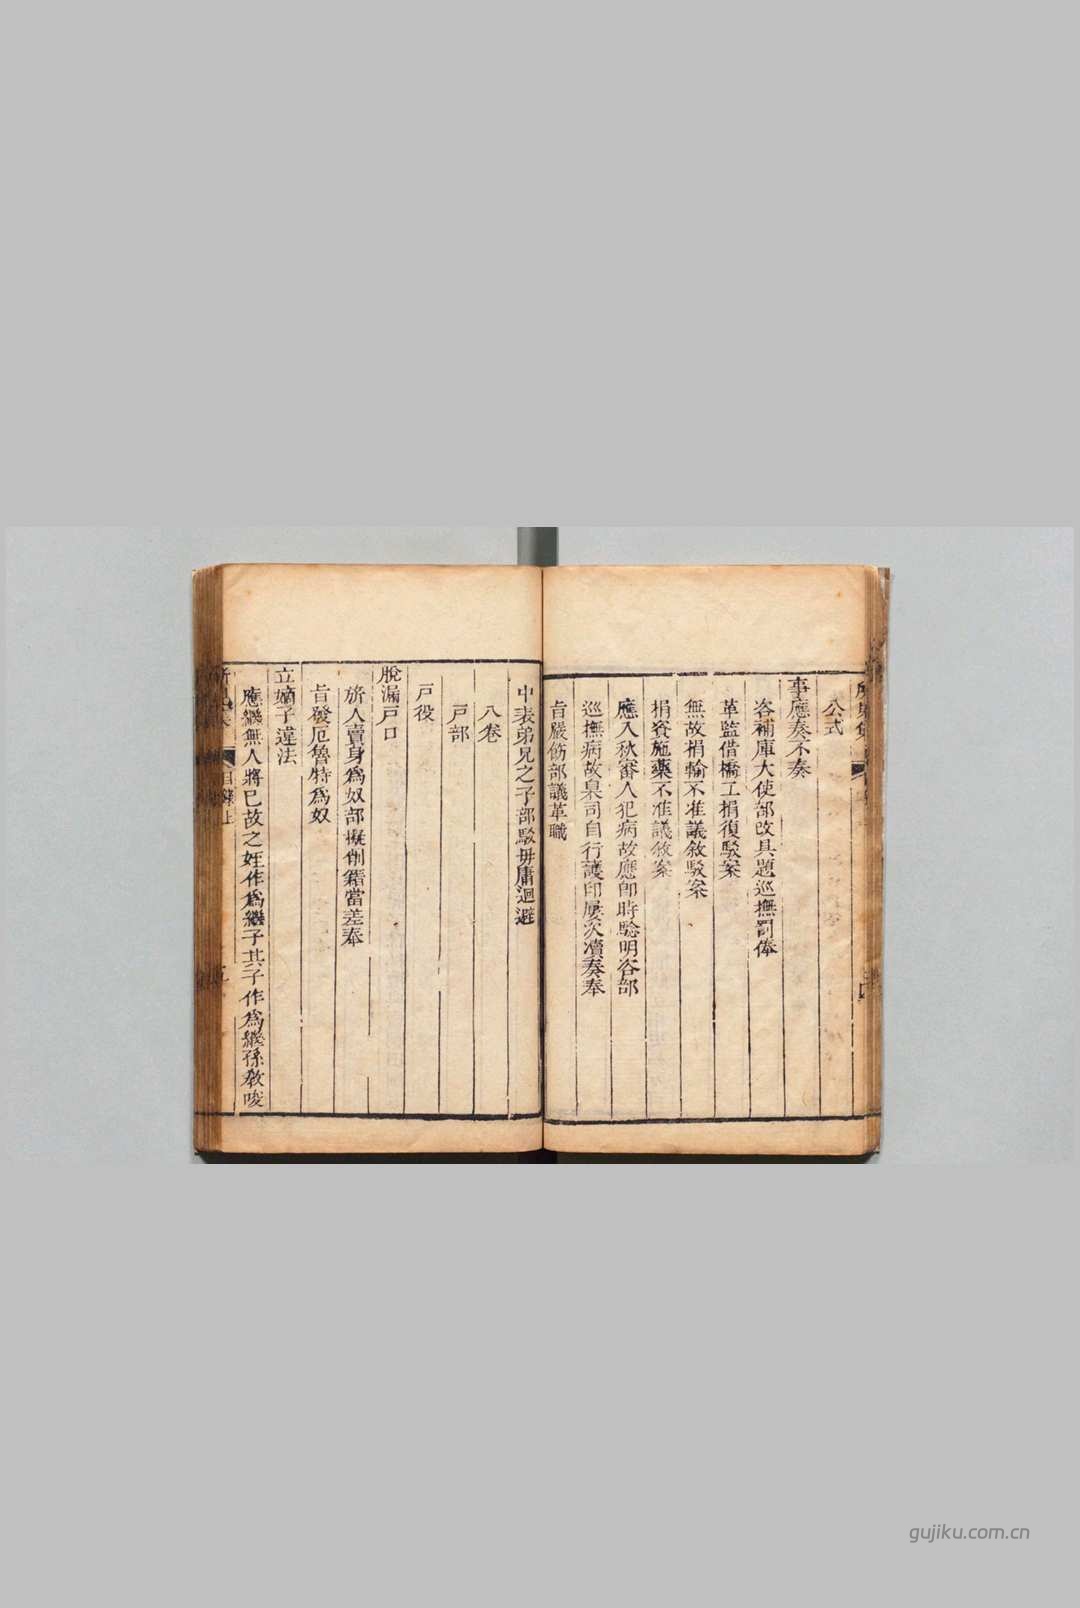 公式
事應奏不奏
咨補庫大使部改具題巡撫罰俸
革監借橋工捐復駁案
無故捐輸不准議敘駁案
捐資施藥不准議敘案
應入秋審人犯病故應即時驗明咨部
巡撫病故臬司自行護印屢次瀆奏奉
旨嚴飭部議革職
中表弟兄之子部駁毋庸迴避
八卷
戸部
戸役
脫漏戸口
旂人賣身爲奴部擬削籍當差奉
旨發厄魯特爲奴
立嫡子違法
應繼無人將已故之姪作爲繼子其子作爲繼孫教唆
目錄上
gujiku.com.cn